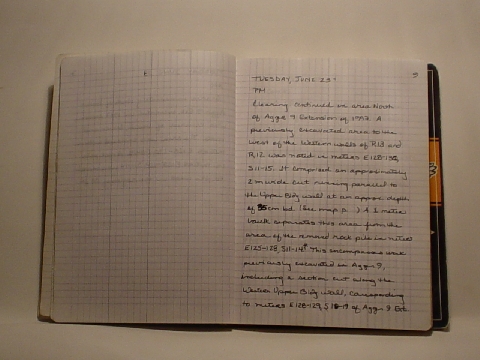 9
TUESDAY, JUNE 23
PM
Clearing continued in area North
of Aggr 9 Extension of 1992. A
previously excavated area to the
West of the Western walls of R13 and
R12 was noted in meters E128-132,
S11-15. It comprised an approximately
2 m wide cut running parallel to
the Upper Bldg wall at an approx depth
of 35 cm bd (see map p ). A 1 meter
baulk separates this area from the
area of the removed rock pile in meters
E125-128, S11-14. This encompasses work
previously excavated in Aggr 9,
including a section cut along the
Western Upper Bldg wall, corresponding
to meters E128-129, S 18-19 of Aggr 9 Ext.